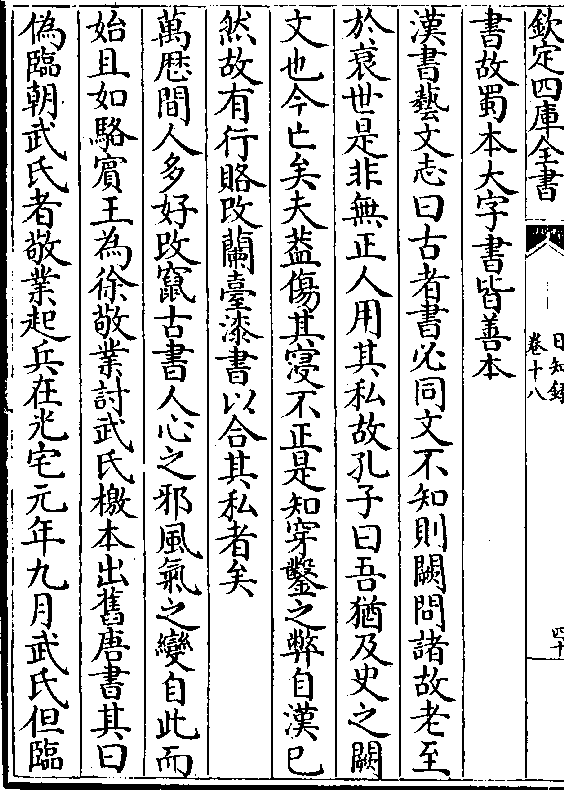 欽定四庫全書
日知録
卷十八
四十
書故蜀本大字書皆善本
漢書藝文志曰古者書必同文不知則闕問諸故老至
於衰世是非無正人用其私故孔子曰吾猶及史之闕
文也今亡矣夫葢傷其寖不正是知穿鑿之弊自漢已
然故有行賂改蘭臺漆書以合其私者矣
萬厯間人多好改竄古書人心之邪風氣之變自此而
始且如駱賓王為徐敬業討武氏檄本出舊唐書其曰
偽臨朝武氏者敬業起兵在光宅元年九月武氏但臨